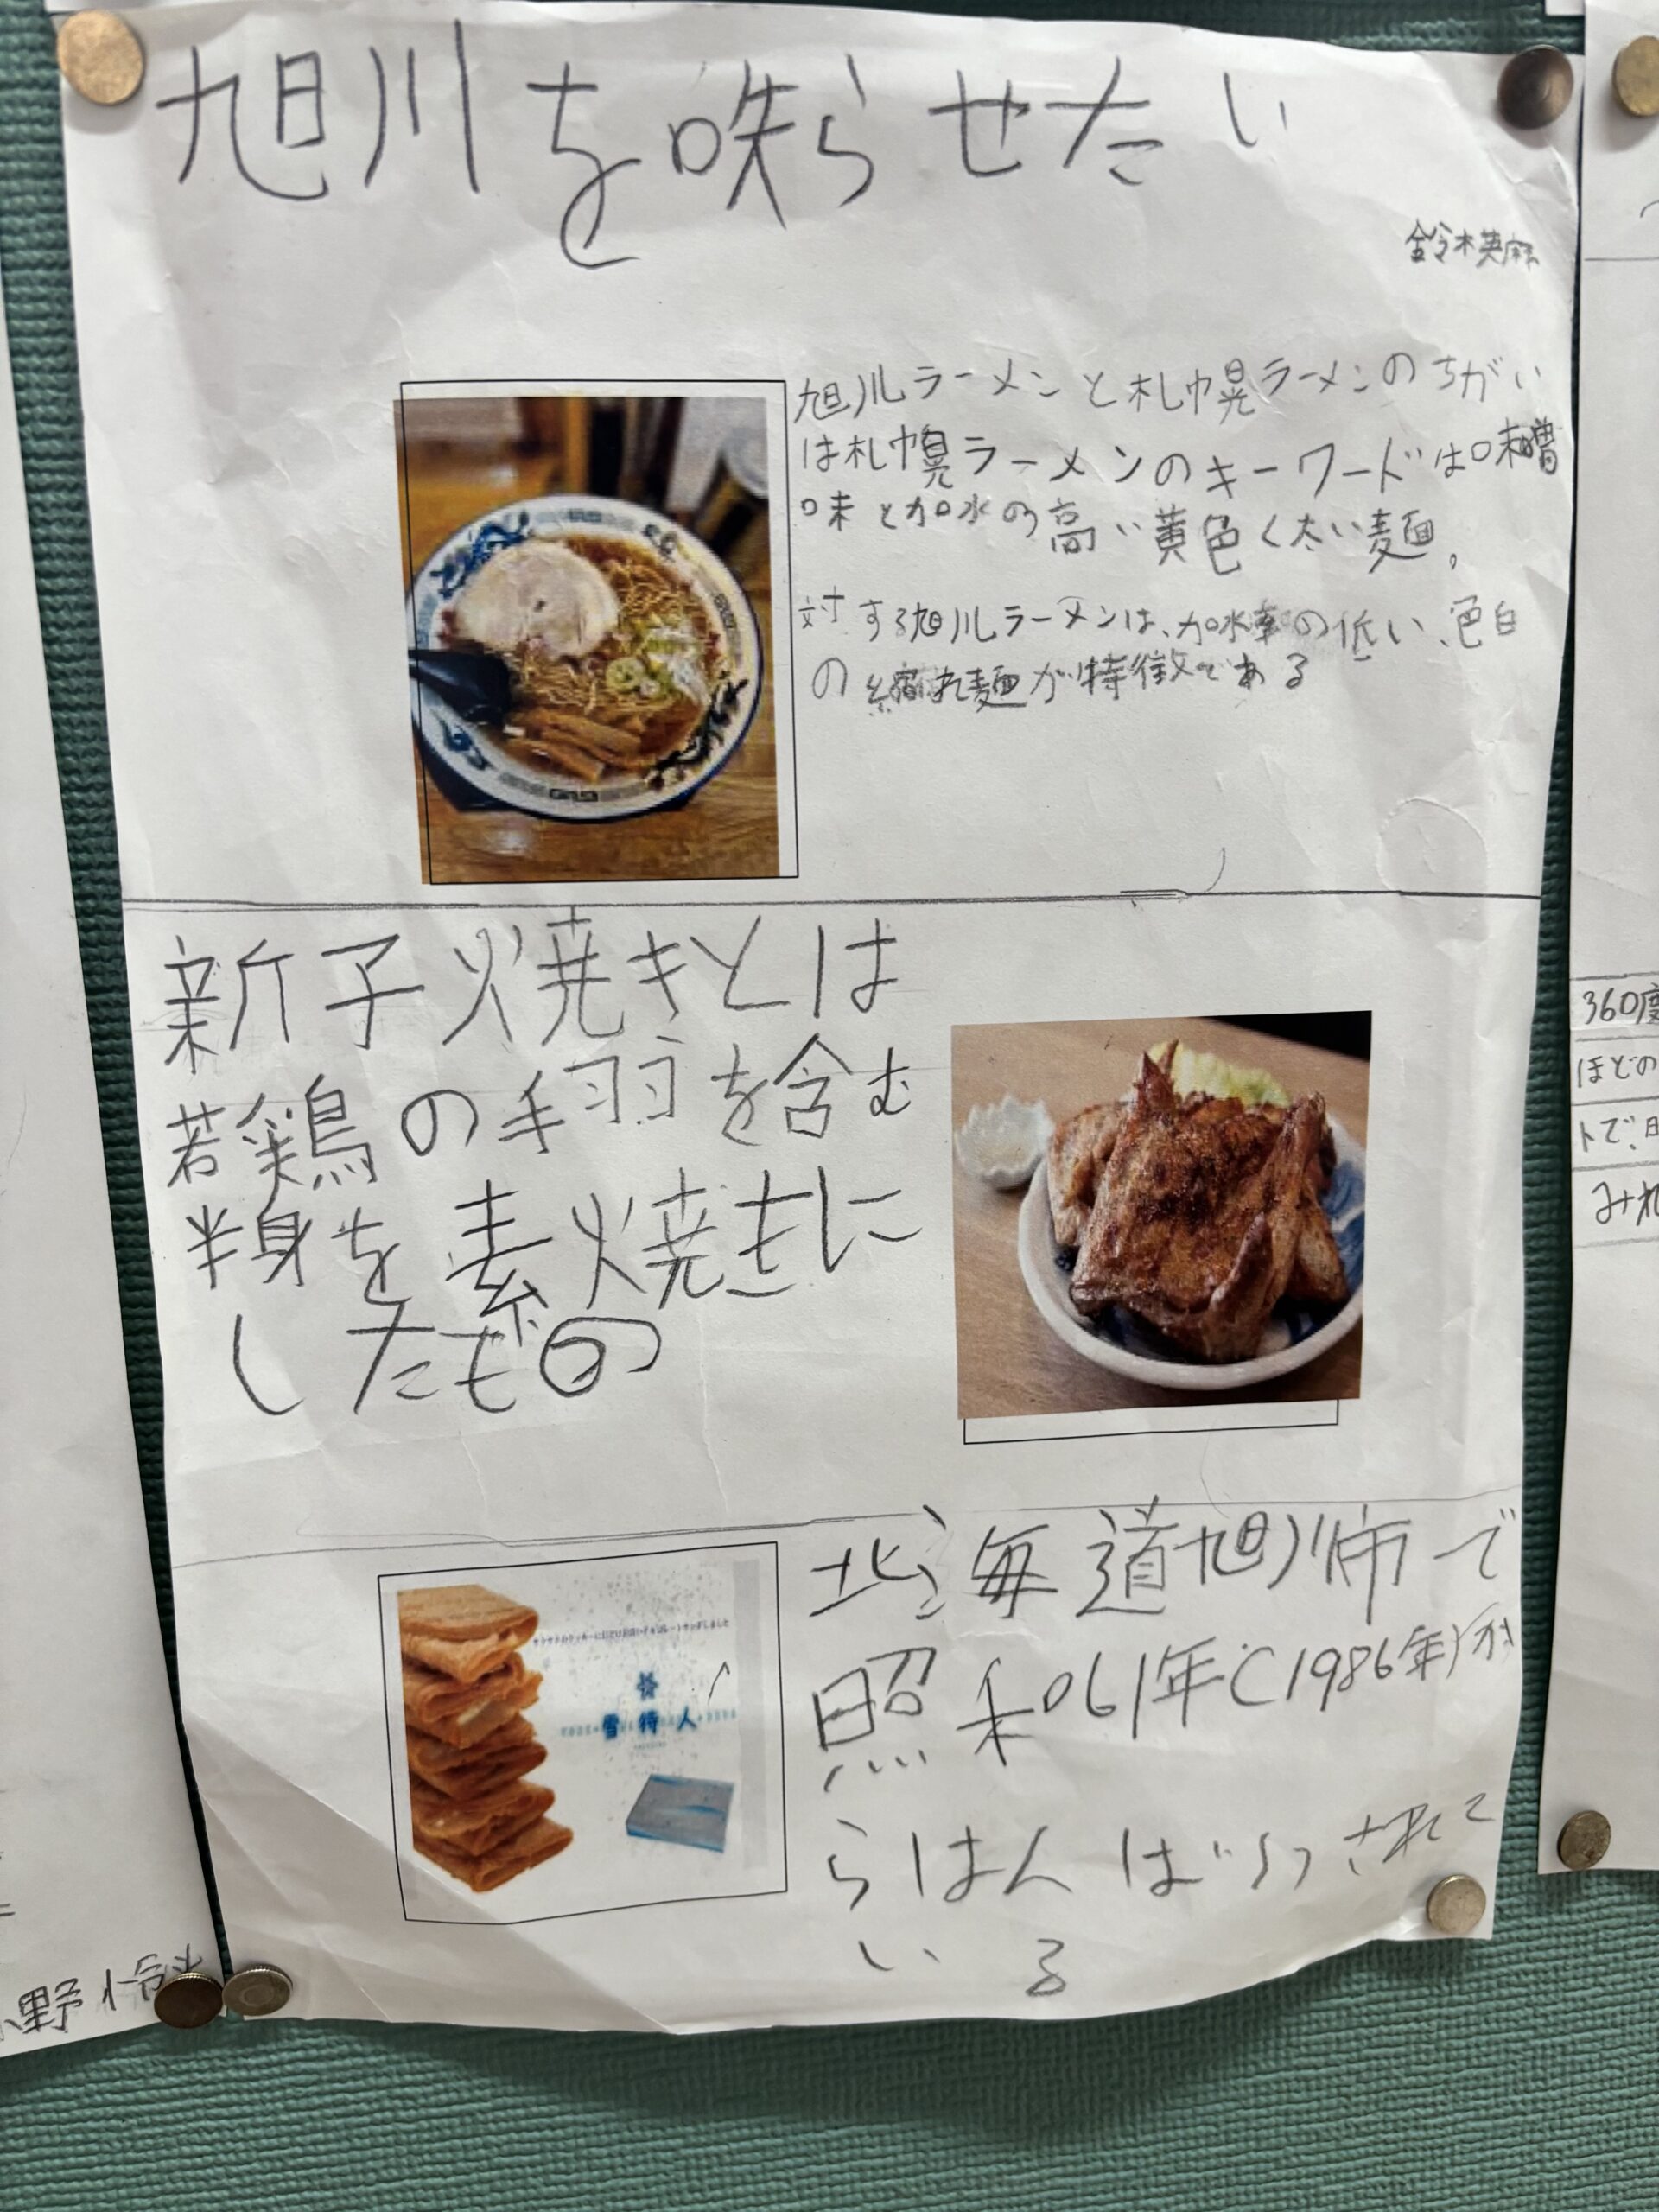 旭川を味らせたい
鈴木英麻
旭川ラーメンと札幌ラーメンのちがい
は札幌ラーメンのキーワードは味噌
味と加水の高い黄色く太い麺。
対する旭川ラーメンは、加水率の低い、色白
の縮れ麺が特徴である
新子焼きとは
若鶏の手羽を含む
半身を素焼きに
したもの
雪待人
北海道旭川市で
昭和61年(1986年)か
らはんばいされて
いる
360度
ほどの
トで、日
みれ
小野